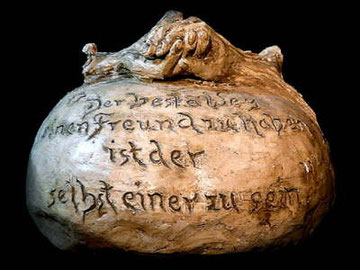 Der beste Weg
einen Freund zu haben
ist der
selbst einer zu sein